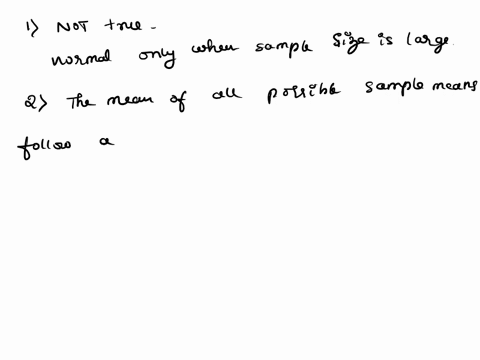 1) NOT true.
normal only when sample size is large.
2) The mean of all possible sample means
follow a